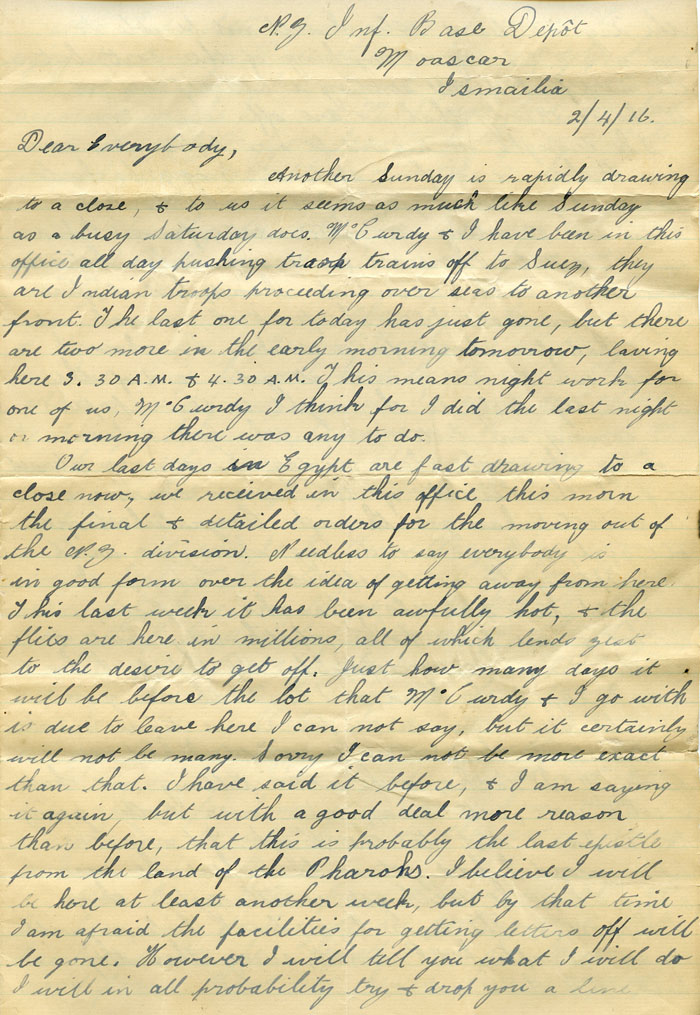 N.Z. Inf. Base Depôt
Moascar
Ismailia
2/4/16.
Dear Everybody,
Another Sunday is rapidly drawing
to a close, & to us it seems as much like Sunday
as a busy Saturday does. McCurdy & I have been in this
office all day pushing troop trains off to Suez, they
are Indian troops proceeding over seas to another
front. The last one for today has just gone, but there
are two more in the early morning tomorrow, laving
here 3.30 A.M. & 4.30 A.M. This means night work for
one of us, McCurdy I think for I did the last night
or morning there was any to do.
Our last days in Egypt are fast drawing to a
close now, we received in this office this morn
the final & detailed orders for the moving out of
the N.Z. division. Needless to say everybody is
in good form over the idea of getting away from here.
This last week it has been awfully hot, & the
flies are here in millions, all of which lends zest
to the desire to get off. Just how many days it
will be before the lot that McCurdy & I go with
is due to leave here I can not say, but it certainly
will not be many. Sorry I can not be more exact
than that. I have said it before, & I am saying
it again, but with a good deal more reason
than before, that this is probably the last epistle
from the land of the Pharohs. I believe I will
be here at least another week, but by that time
I am afraid the facilities for getting letters off will
be gone. However I will tell you what I will do
I will in all probability try & drop you a line